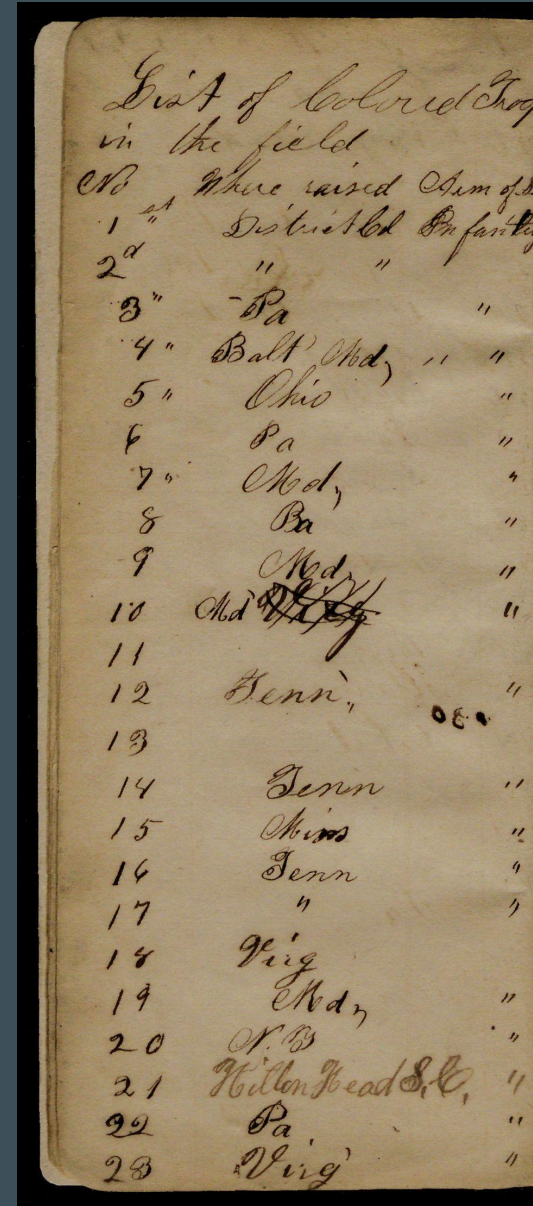 List of Colored Troo
in the field
No Where raised Arm of S
1st " District Col Infantry
2d " "
3 " Pa "
4 " Balt Md, " "
5 " Ohio "
6 Pa "
7 " Md, "
8 Pa "
9 Md "
10 Md "
11
12 Tenn, "
13
14 Tenn "
15 Miss "
16 Tenn "
17 " "
18 Virg
19 Md, "
20 N.Y "
21 Hilton Head S.C. "
22 Pa "
23 Virg "